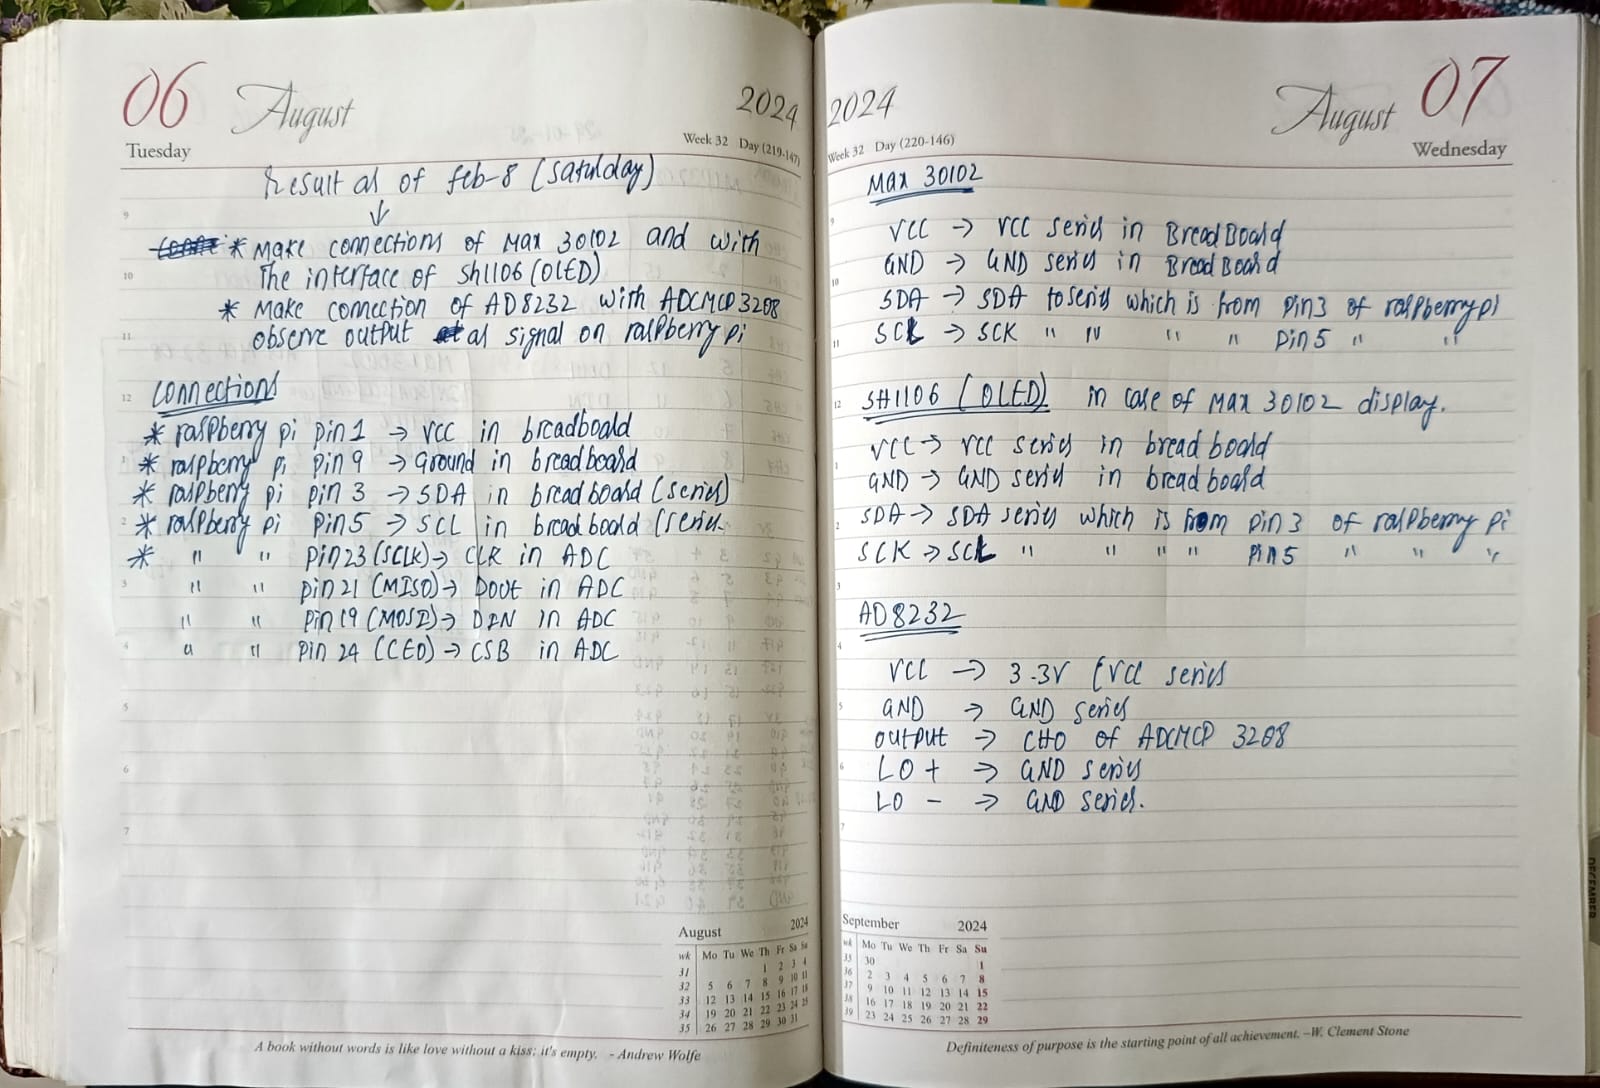 06 August 2024
Tuesday
Week 32 Day (219-147)
Result as of feb-8 (saturday)
↓
* Make connections of Max 30102 and with
The interface of SH1106 (OLED)
* Make connection of AD8232 with ADCMCP3208
observe output as signal on raspberry pi
connections
* raspberry pi pin 1 → VCC in breadboard
* raspberry pi pin 9 → Ground in breadboard
* raspberry pi pin 3 → SDA in breadboard (series)
* raspberry pi pin 5 → SCL in breadboard (series.
* " " pin 23 (SCLK) → CLK in ADC
" " pin 21 (MISO) → Dout in ADC
" " pin 19 (MOSI) → DIN in ADC
" " pin 24 (CEO) → CSB in ADC
August 2024
wk Mo Tu We Th Fr Sa Su
31 1 2 3 4
32 5 6 7 8 9 10 11
33 12 13 14 15 16 17 18
34 19 20 21 22 23 24 25
35 26 27 28 29 30 31
A book without words is like love without a kiss; it's empty. - Andrew Wolfe
2024 August 07
Week 32 Day (220-146)
Wednesday
Max 30102
VCC → VCC series in BreadBoard
GND → GND series in BreadBoard
SDA → SDA to series which is from pin3 of raspberry pi
SCL → SCK " " " " Pin 5 " "
SH1106 (OLED) in case of Max 30102 display.
VCC → VCC series in bread board
GND → GND series in bread board
SDA → SDA series which is from pin 3 of raspberry pi
SCK → SCL " " " " Pin 5 " " "
AD8232
VCC → 3.3V (VCC series
GND → GND series
output → CHO of ADCMCP 3208
LO + → GND series
LO - → GND series.
September 2024
wk Mo Tu We Th Fr Sa Su
35 30 1
36 2 3 4 5 6 7 8
37 9 10 11 12 13 14 15
38 16 17 18 19 20 21 22
39 23 24 25 26 27 28 29
Definiteness of purpose is the starting point of all achievement. –W. Clement Stone
DECEMBER